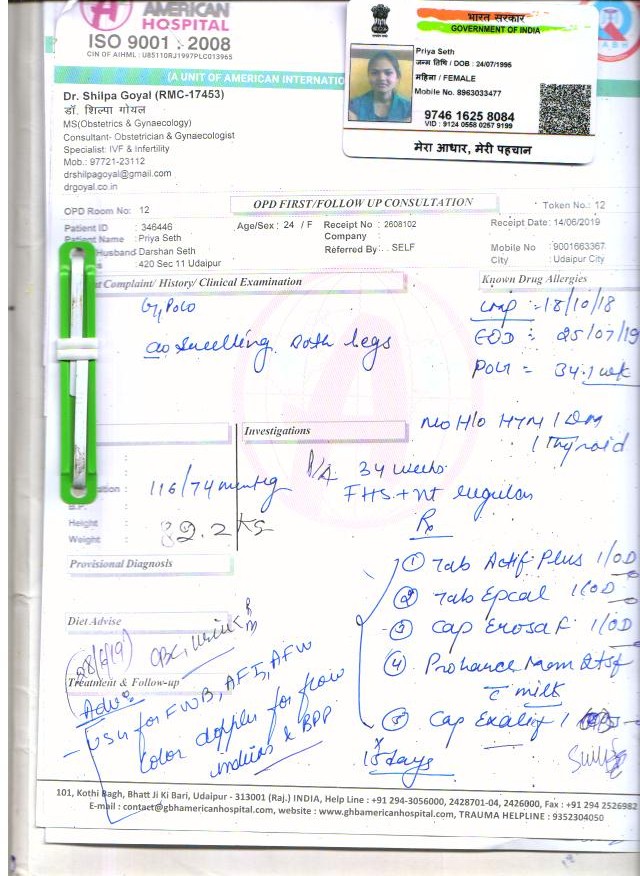 AMERICAN
HOSPITAL
ISO 9001 : 2008
CIN OF AIHML : U85110RJ1997PLC013965
(A UNIT OF AMERICAN INTERNATIO
भारत सरकार
GOVERNMENT OF INDIA
Priya Seth
जन्म तिथि / DOB : 24/07/1995
महिला / FEMALE
Mobile No. 8963033477
9746 1625 8084
VID : 9124 0558 0257 9199
मेरा आधार, मेरी पहचान
ABH
Dr. Shilpa Goyal (RMC-17453)
डॉ. शिल्पा गोयल
MS(Obstetrics & Gynaecology)
Consultant- Obstetrician & Gynaecologist
Specialist: IVF & Infertility
Mob.: 97721-23112
drshilpagoyal@gmail.com
drgoyal.co.in
OPD Room No: 12
OPD FIRST/FOLLOW UP CONSULTATION
Token No.: 12
Patient ID : 346446
Age/Sex : 24 / F
Receipt No : 2608102
Receipt Date: 14/06/2019
Patient Name : Priya Seth
Company :
Husband Darshan Seth
Referred By : . SELF
Mobile No : 9001663367
: 420 Sec 11 Udaipur
City : Udaipur City
t Complaint/ History/ Clinical Examination
Known Drug Allergies
LMP :- 18/10/18
EDD : 25/07/19
POG = 34.1 wk
swelling both legs
No H/o HTN / DM
/ Thyroid
Investigations
P/A 34 weeks
FHS + nt regular
ation : 116/74 mmHg
B.P. :
Height :
Weight : 89.2 KG
Rx
Provisional Diagnosis
① Tab Actif Plus 1/OD
② Tab Epcal 1/OD
③ Cap Erosa F 1/OD
④ Prohance Mom 2tsf
c milk
⑤ Cap Exalif 1
15 days
Diet Advise
28/6/19
CBC, Urine R
M
Treatment & Follow-up
Adv:
- USG for FWB, AFI, AFW
Color doppler for flow
indices & BPP
101, Kothi Bagh, Bhatt Ji Ki Bari, Udaipur - 313001 (Raj.) INDIA, Help Line : +91 294-3056000, 2428701-04, 2426000, Fax : +91 294 2526982
E-mail : contact@gbhamericanhospital.com, website : www.ghbamericanhospital.com, TRAUMA HELPLINE : 9352304050